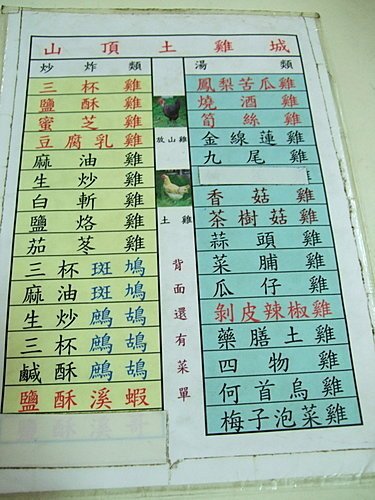 山頂土雞城
炒炸類
三杯雞
鹽酥雞
蜜芝雞
豆腐乳雞
麻油雞
生炒雞
白斬雞
鹽烙雞
茄苳雞
三杯斑鳩
麻油斑鳩
生炒鷓鴣
三杯鷓鴣
鹹酥鷓鴣
鹽酥溪蝦
放山雞
土雞
背面還有菜單
湯類
鳳梨苦瓜雞
燒酒雞
筍絲雞
金線蓮雞
九尾雞
香菇雞
茶樹菇雞
蒜頭雞
菜脯雞
瓜仔雞
剝皮辣椒雞
藥膳土雞
四物雞
何首烏雞
梅子泡菜雞